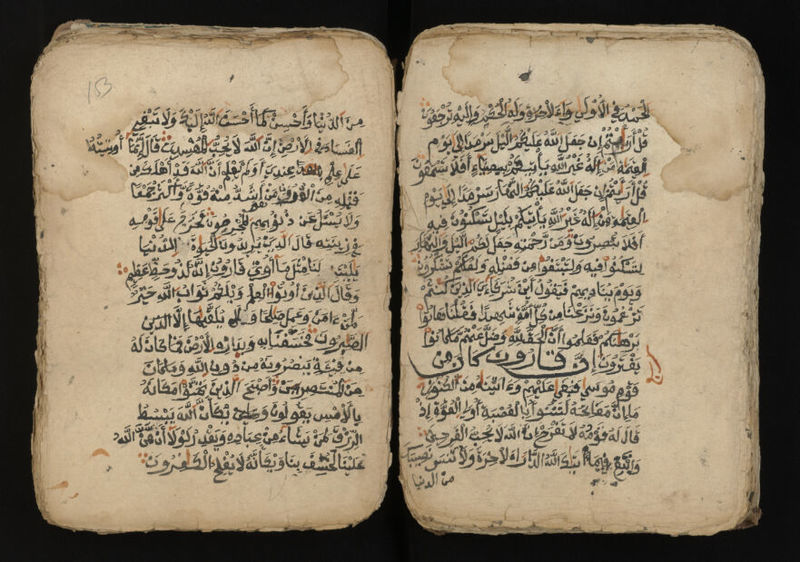 الحمد في الاولى والاخرة وله الحكم واليه ترجعون
قل ارءيتم ان جعل الله عليكم اليل سرمدا الى يوم
القيمة من اله غير الله ياتيكم بضياء افلا تسمعون
قل ارءيتم ان جعل الله عليكم النهار سرمدا الى يوم
القيمة من اله غير الله ياتيكم بليل تسكنون فيه
افلا تبصرون ومن رحمته جعل لكم اليل والنهار
لتسكنوا فيه ولتبتغوا من فضله ولعلكم تشكرون
ويوم يناديهم فيقول اين شركاءي الذين كنتم
تزعمون ونزعنا من كل امة شهيدا فقلنا هاتوا
برهانكم فعلموا ان الحق لله وضل عنهم ما كانوا
يفترون ان قارون كان من
قوم موسى فبغى عليهم وءاتينه من الكنوز
ما ان مفاتحه لتنوا بالعصبة اولى القوة اذ
قال له قومه لا تفرح ان الله لا يحب الفرحين
وابتغ فيما ءاتيك الله الدار الاخرة ولا تنس نصيبك
من الدنيا
153
من الدنيا واحسن كما احسن الله اليك ولا تبغ
الفساد في الارض ان الله لا يحب المفسدين قال انما اوتيته
على علم عندى اولم يعلم ان الله قد اهلك من
قبله من القرون من هو اشد منه قوة واكثر جمعا
ولا يسئل عن ذنوبهم المجرمون فخرج على قومه
في زينته قال الذين يريدون الحيوة الدنيا
يليت لنا مثل ما اوتى قارون انه لذو حظ عظيم
وقال الذين اوتوا العلم ويلكم ثواب الله خير
لمن ءامن وعمل صلحا ولا يلقيها الا
الصبرون فخسفنا به وبداره الارض فما كان له
من فئة ينصرونه من دون الله وما كان
من المنتصرين واصبح الذين تمنوا مكانه
بالامس يقولون ويكان الله يبسط
الرزق لمن يشاء من عباده ويقدر لولا ان من الله
علينا لخسف بنا ويكانه لا يفلح الكفرون